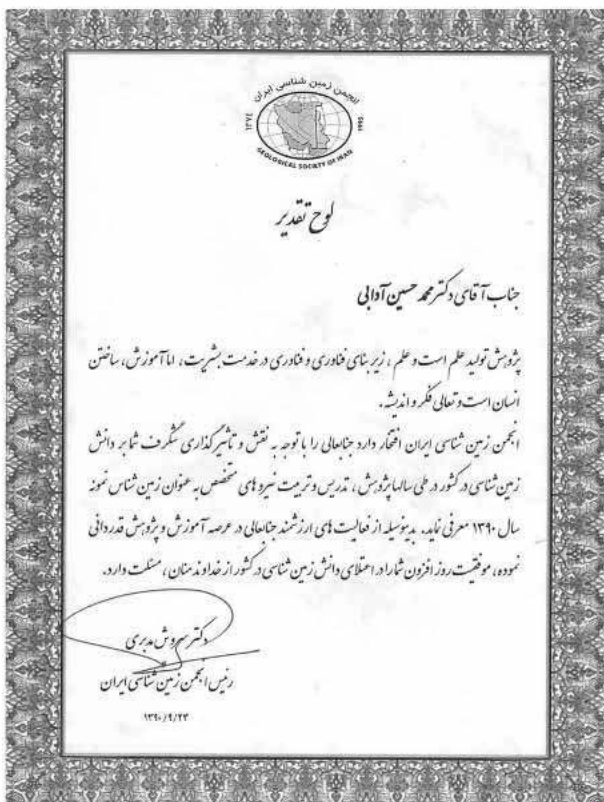 انجمن زمین شناسی ایران
۱۳۷٤
1995
GEOLOGICAL SOCIETY OF IRAN
لوح تقدیر
جناب آقای دکتر محمد حسین آدابی
پژوهش تولید علم است و علم ، زیر بنای فناوری و فناوری در خدمت بشریت ، اما آموزش ، ساختن
انسان است و تعالی فکر و اندیشه .
انجمن زمین شناسی ایران افتخار دارد جنابعالی را با توجه به نقش و تاثیر گذاری شگرف شما بر دانش
زمین شناسی در کشور در طی سالها پژوهش ، تدریس و تربیت نیرو های متخصص به عنوان زمین شناس نمونه
سال ۱۳۹۰ معرفی نماید. بدینوسیله از فعالیت های ارزشمند جنابعالی در عرصه آموزش و پژوهش قدردانی
نموده ، موفقیت روز افزون شما را در اعتلای دانش زمین شناسی در کشور از خداوند منان ، مسئلت دارد .
دکتر سروش مدبری
رئیس انجمن زمین شناسی ایران
۱۳۹۰/۹/۲۳